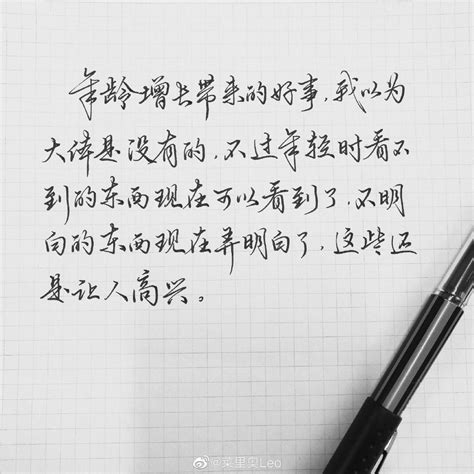 年龄增长带来的好事，我以为
大体是没有的，不过年轻时看不
到的东西现在可以看到了，不明
白的东西现在弄明白了，这些还
是让人高兴。
@莱里奥Leo